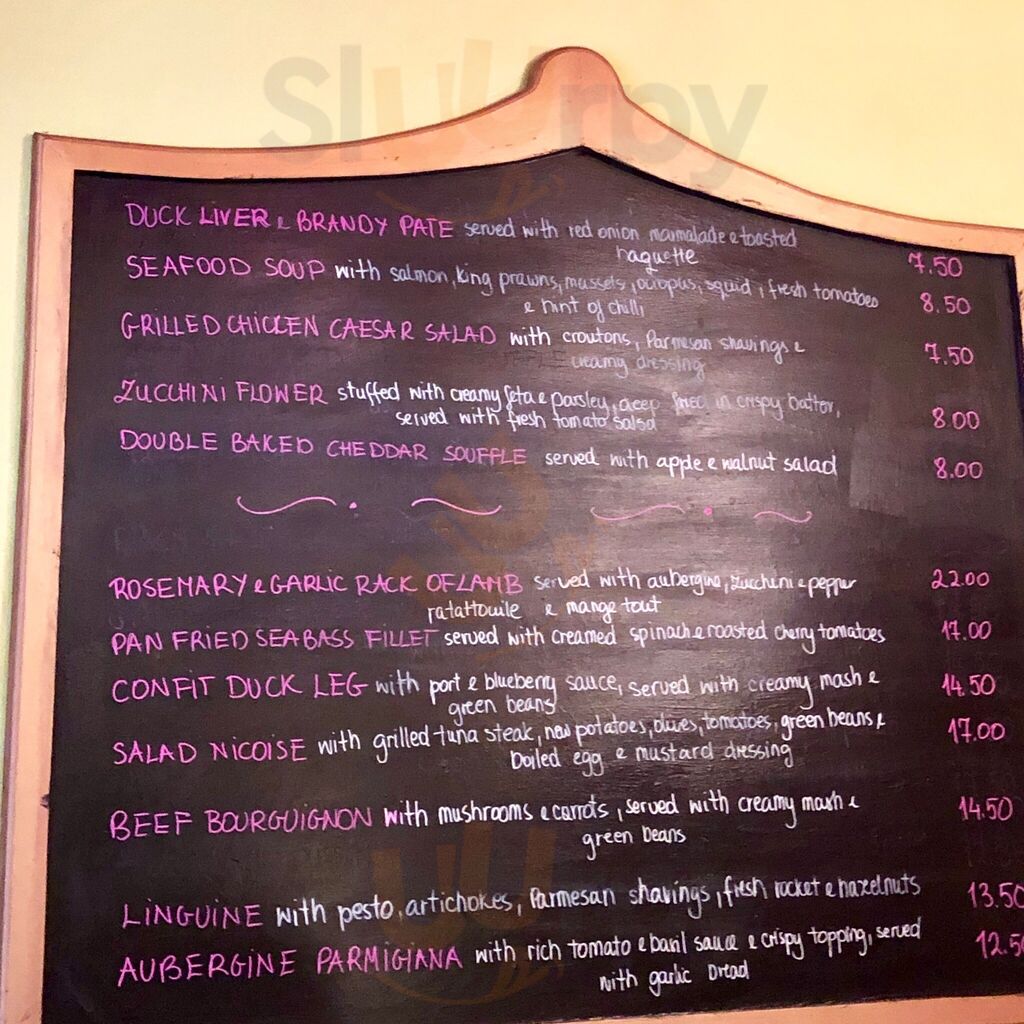 Slurpy
DUCK LIVER & BRANDY PATE served with red onion marmalade & toasted
baguette 7.50
SEAFOOD SOUP with salmon, king prawns, mussels, octopus, squid, fresh tomatoes 8.50
& hint of chilli
GRILLED CHICKEN CAESAR SALAD with croutons, Parmesan shavings & 7.50
creamy dressing
ZUCCHINI FLOWER stuffed with creamy feta & parsley, deep fried in crispy batter, 8.00
served with fresh tomato salsa
DOUBLE BAKED CHEDDAR SOUFFLE served with apple & walnut salad 8.00
ROSEMARY & GARLIC RACK OF LAMB served with aubergine, zucchini & pepper 22.00
ratattouile & mange tout
PAN FRIED SEABASS FILLET served with creamed spinach & roasted cherry tomatoes 17.00
CONFIT DUCK LEG with port & blueberry sauce, served with creamy mash & 14.50
green beans
SALAD NICOISE with grilled tuna steak, new potatoes, olives, tomatoes, green beans & 17.00
boiled egg & mustard dressing
BEEF BOURGUIGNON with mushrooms & carrots, served with creamy mash & 14.50
green beans
LINGUINE with pesto, artichokes, Parmesan shavings, fresh rocket & hazelnuts 13.50
AUBERGINE PARMIGIANA with rich tomato & basil sauce & crispy topping, served 12.50
with garlic bread